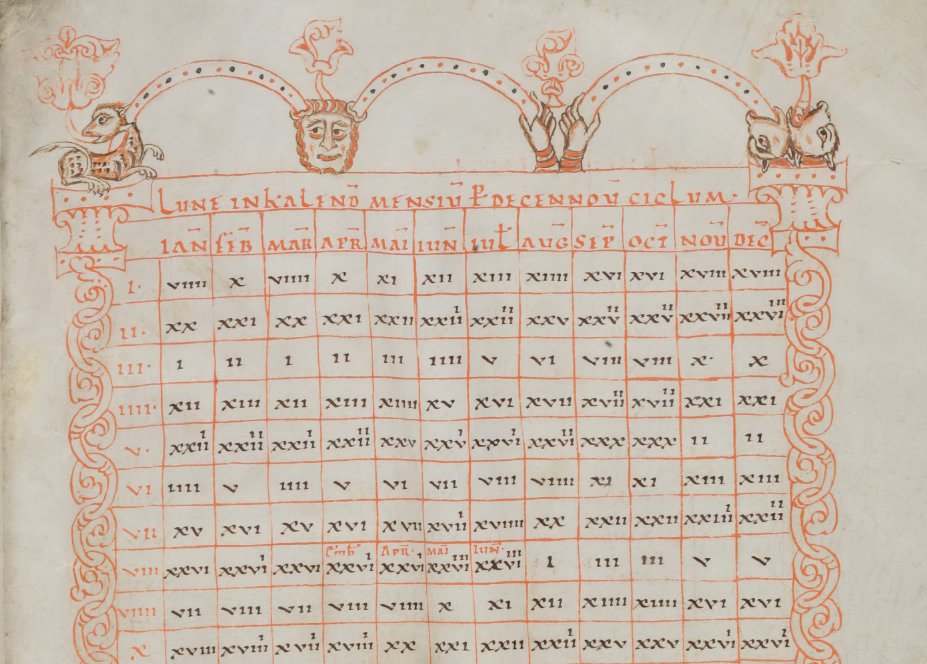 LUNE IN KALEND MENSIU P DECENNOU CICLUM·
IAN FEB MAR APR MAI IUN IUL AUG SEP OCT NOU DEC
I· viiii x viiii x xi xii xiii xiiii xvi xvi xviii xviii
II· xx xxi xx xxi xxii xxiii xxiiii xxv xxvii xxvii xxviiii xxviiii
III· i ii i ii iii iiii v vi viii viii x· x
IIII· xii xiii xii xiii xiiii xv xvi xvii xviiii xviiii xxi xxi
V· xxiii xxiiii xxiii xxiiii xxv xxvi xxvii xxviii xxx xxx ii ii
VI iiii v iiii v vi vii viii viiii xi xi xiii xiii
VII xv xvi xv xvi xvii xviii xviiii xx xxii xxii xxiiii xxiiii
EMB APR· MAI IUN
VIII xxvi xxvii i iii iii v v
VIIII vii viii vii viii viiii x xi xii xiiii xiiii xvi xvi
X xviii xviiii xviii xviiii xx xxi xxii xxiii xxv xxv xxvii xxvii